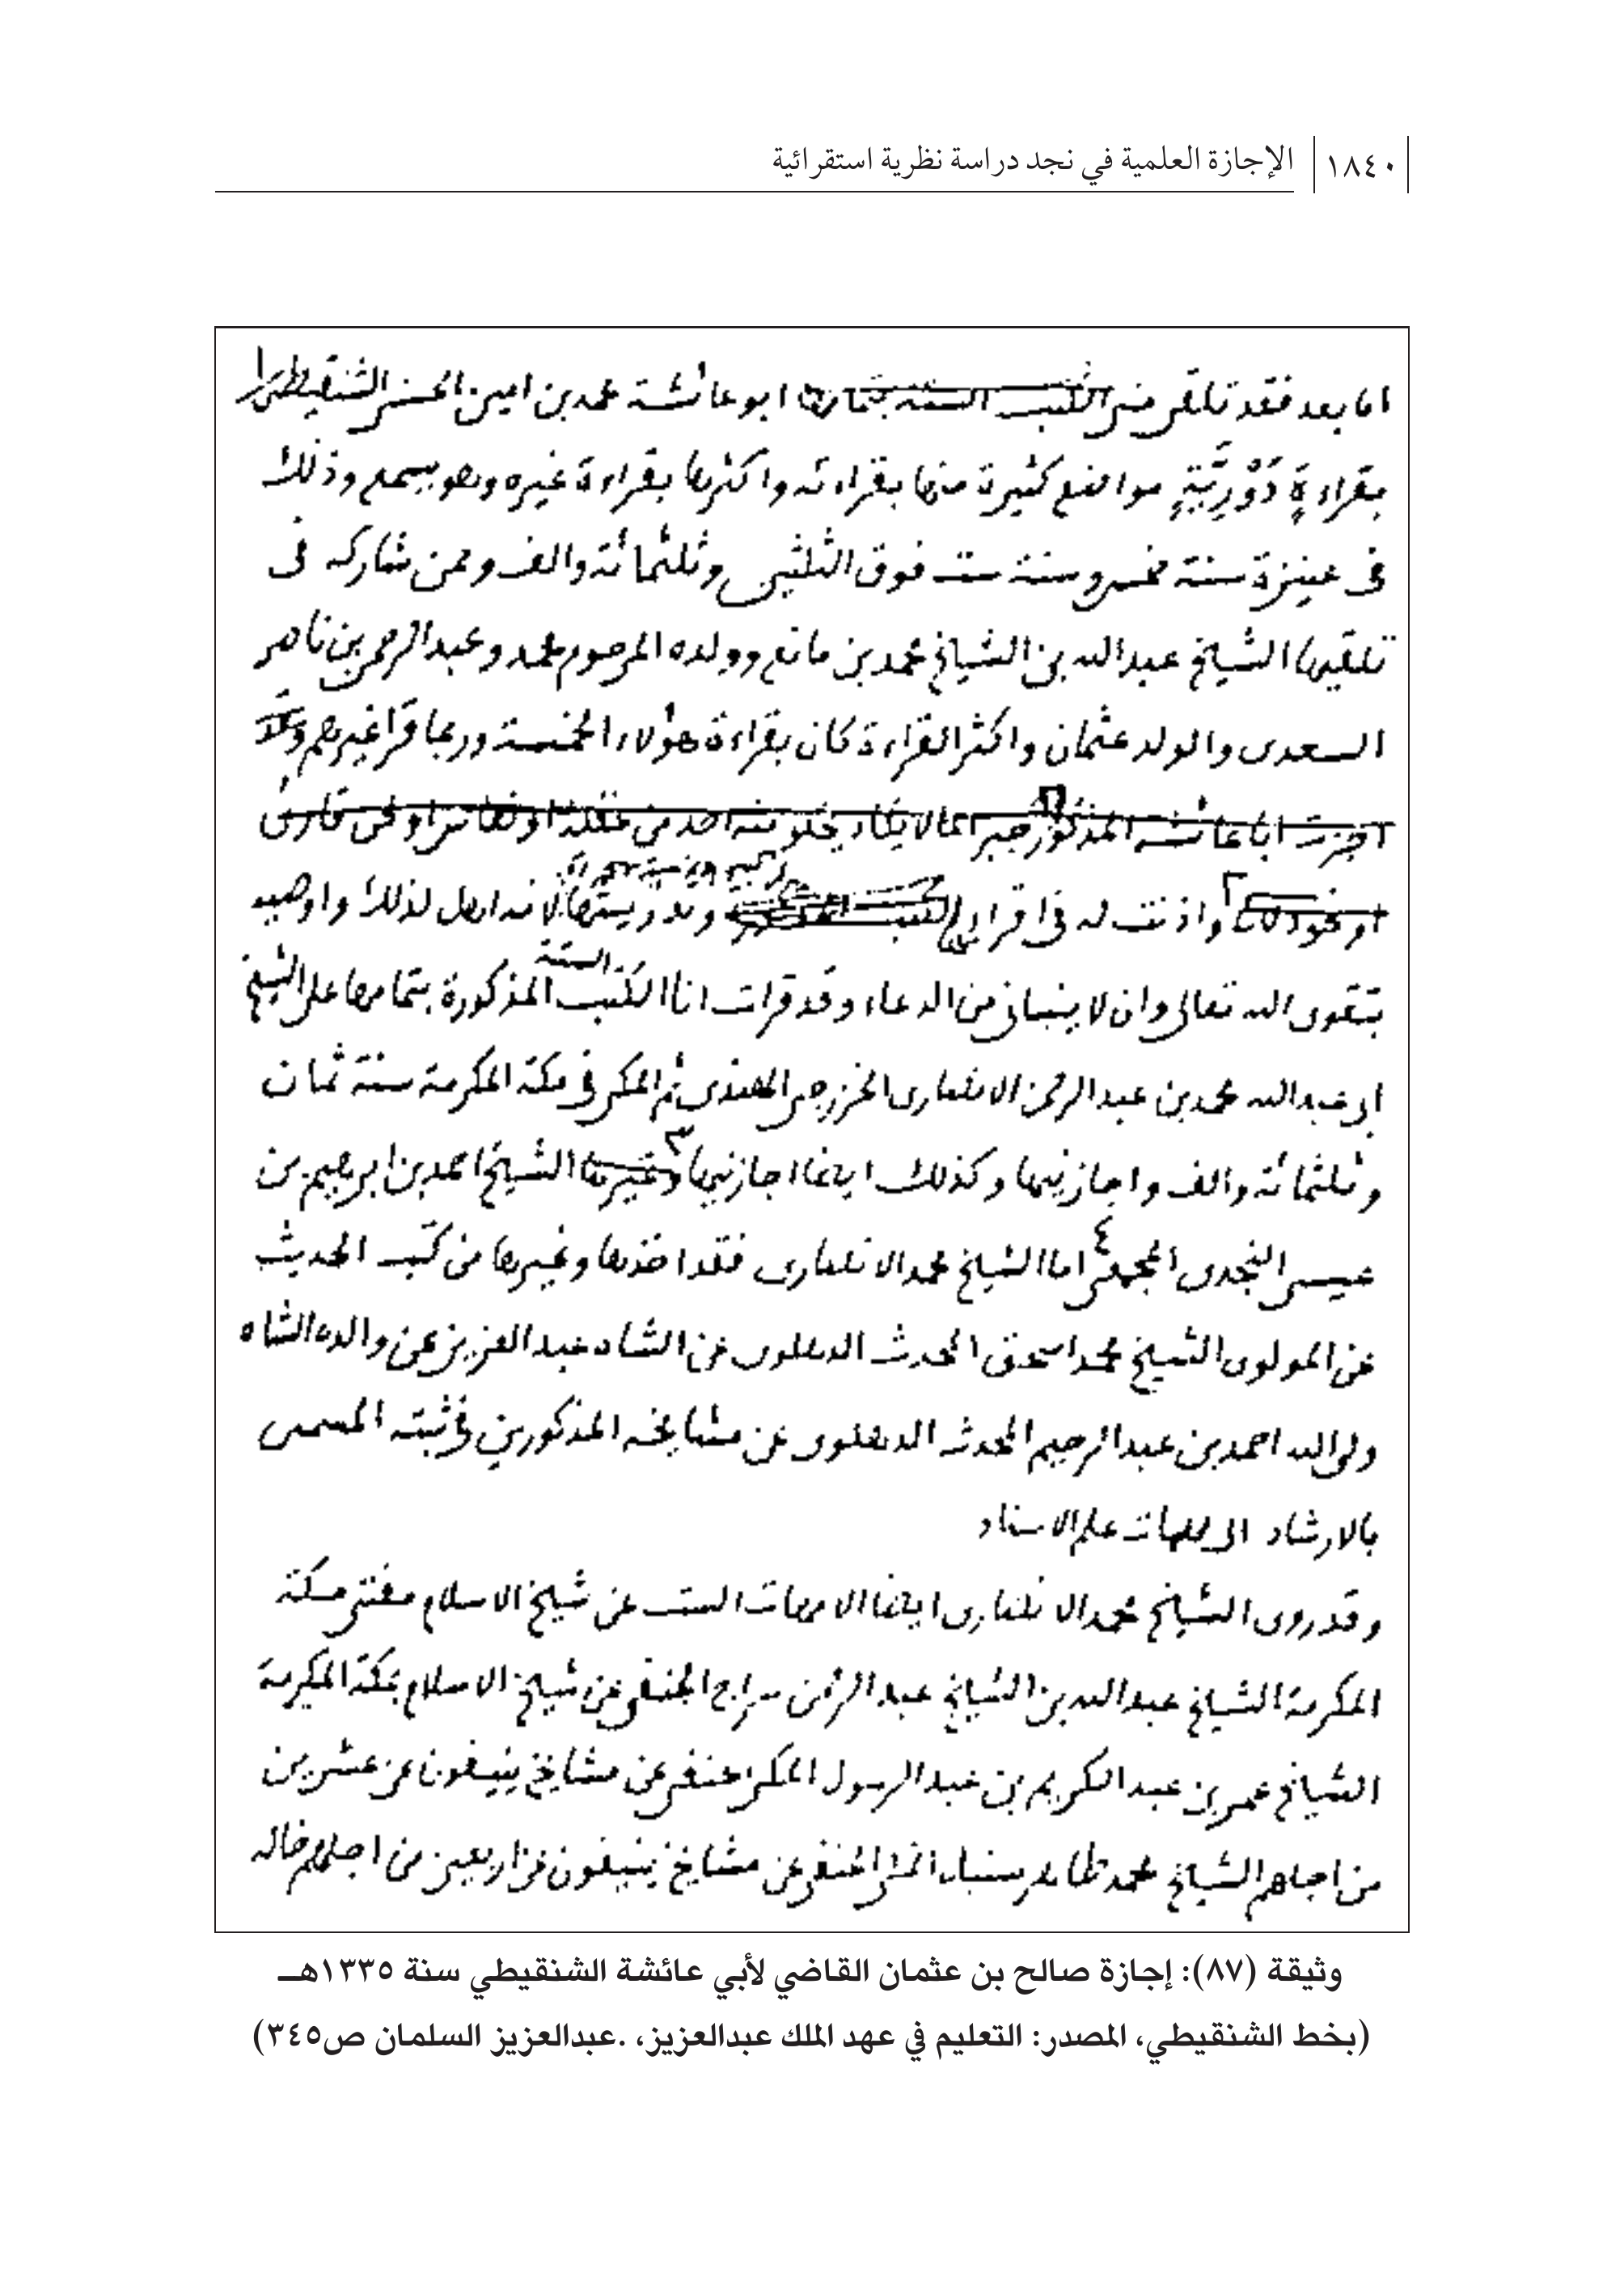 ١٨٤٠ الإجازة العلمية في نجد دراسة نظرية استقرائية
اما بعد فقد تلقى منى الكتب الستة بتمامها ابو عائشة محمد بن امين الحسنى الشنقيطى
بقراءةٍ دَوْرِيَّةٍ مواضع كثيرة منها بقراءته واكثرها بقراءة غيره وهو يسمع وذلك
فى عنيزة سنة خمس وسنة ست فوق الثلثين وثلثمائة والف وممن شاركه فى
تلقيها الشيخ عبد الله بن الشيخ محمد بن مانع وولده المرحوم محمد وعبد الرحمن بن ناصر
السعدى والولد عثمان واكثر القراءة كان بقراءة هؤلاء الخمسة وربما قرا غيرهم وقد
اجزت ابا عائشة المذكور جبرا لما لا يكاد يخلو منه احد من غفلة او نعاس او لحن قارئ
او نحو ذلك واذنت له فى اقراء الكتب وتدريسها لانه اهل لذلك واوصيه
بتقوى الله تعالى وان لا ينسانى من الدعاء وقد قرات انا الكتب الستة المذكورة بتمامها على الشيخ
ابى عبد الله محمد بن عبد الرحمن الانصارى الخزرجى الهندى ثم المكى فى مكة المكرمة سنة ثمان
وثلثمائة والف واجازنيها وكذلك ايضا اجازنيها وغيرها الشيخ احمد بن ابرهيم بن
عيسى النجدى المجمعى ٤ اما الشيخ محمد الانصارى فقد اخذها وغيرها من كتب الحديث
عن المولوى الشيخ محمد اسحق المحدث الدهلوى عن الشاه عبد العزيز عن والده الشاه
ولى الله احمد بن عبد الرحيم المحدث الدهلوى عن مشايخه المذكورين فى ثبته المسمى
بالارشاد الى مهمات علم الاسناد
وقد روى الشيخ محمد الانصارى ايضا الامهات الست عن شيخ الاسلام مفتى مكة
المكرمة الشيخ عبد الله بن الشيخ عبد الرحمن سراج الحنفى عن شيخ الاسلام بمكة المكرمة
الشيخ عمر بن عبد الكريم بن عبد الرسول المكى الحنفى عن مشايخ ينيفون عن عشرين
من اجلهم الشيخ محمد طاهر سنبل الحنفى عن مشايخ ينيفون عن اربعين من اجلهم خاله
وثيقة (٨٧): إجازة صالح بن عثمان القاضي لأبي عائشة الشنقيطي سنة ١٣٣٥هـ
(بخط الشنقيطي، المصدر: التعليم في عهد الملك عبدالعزيز، .عبدالعزيز السلمان ص٣٤٥)